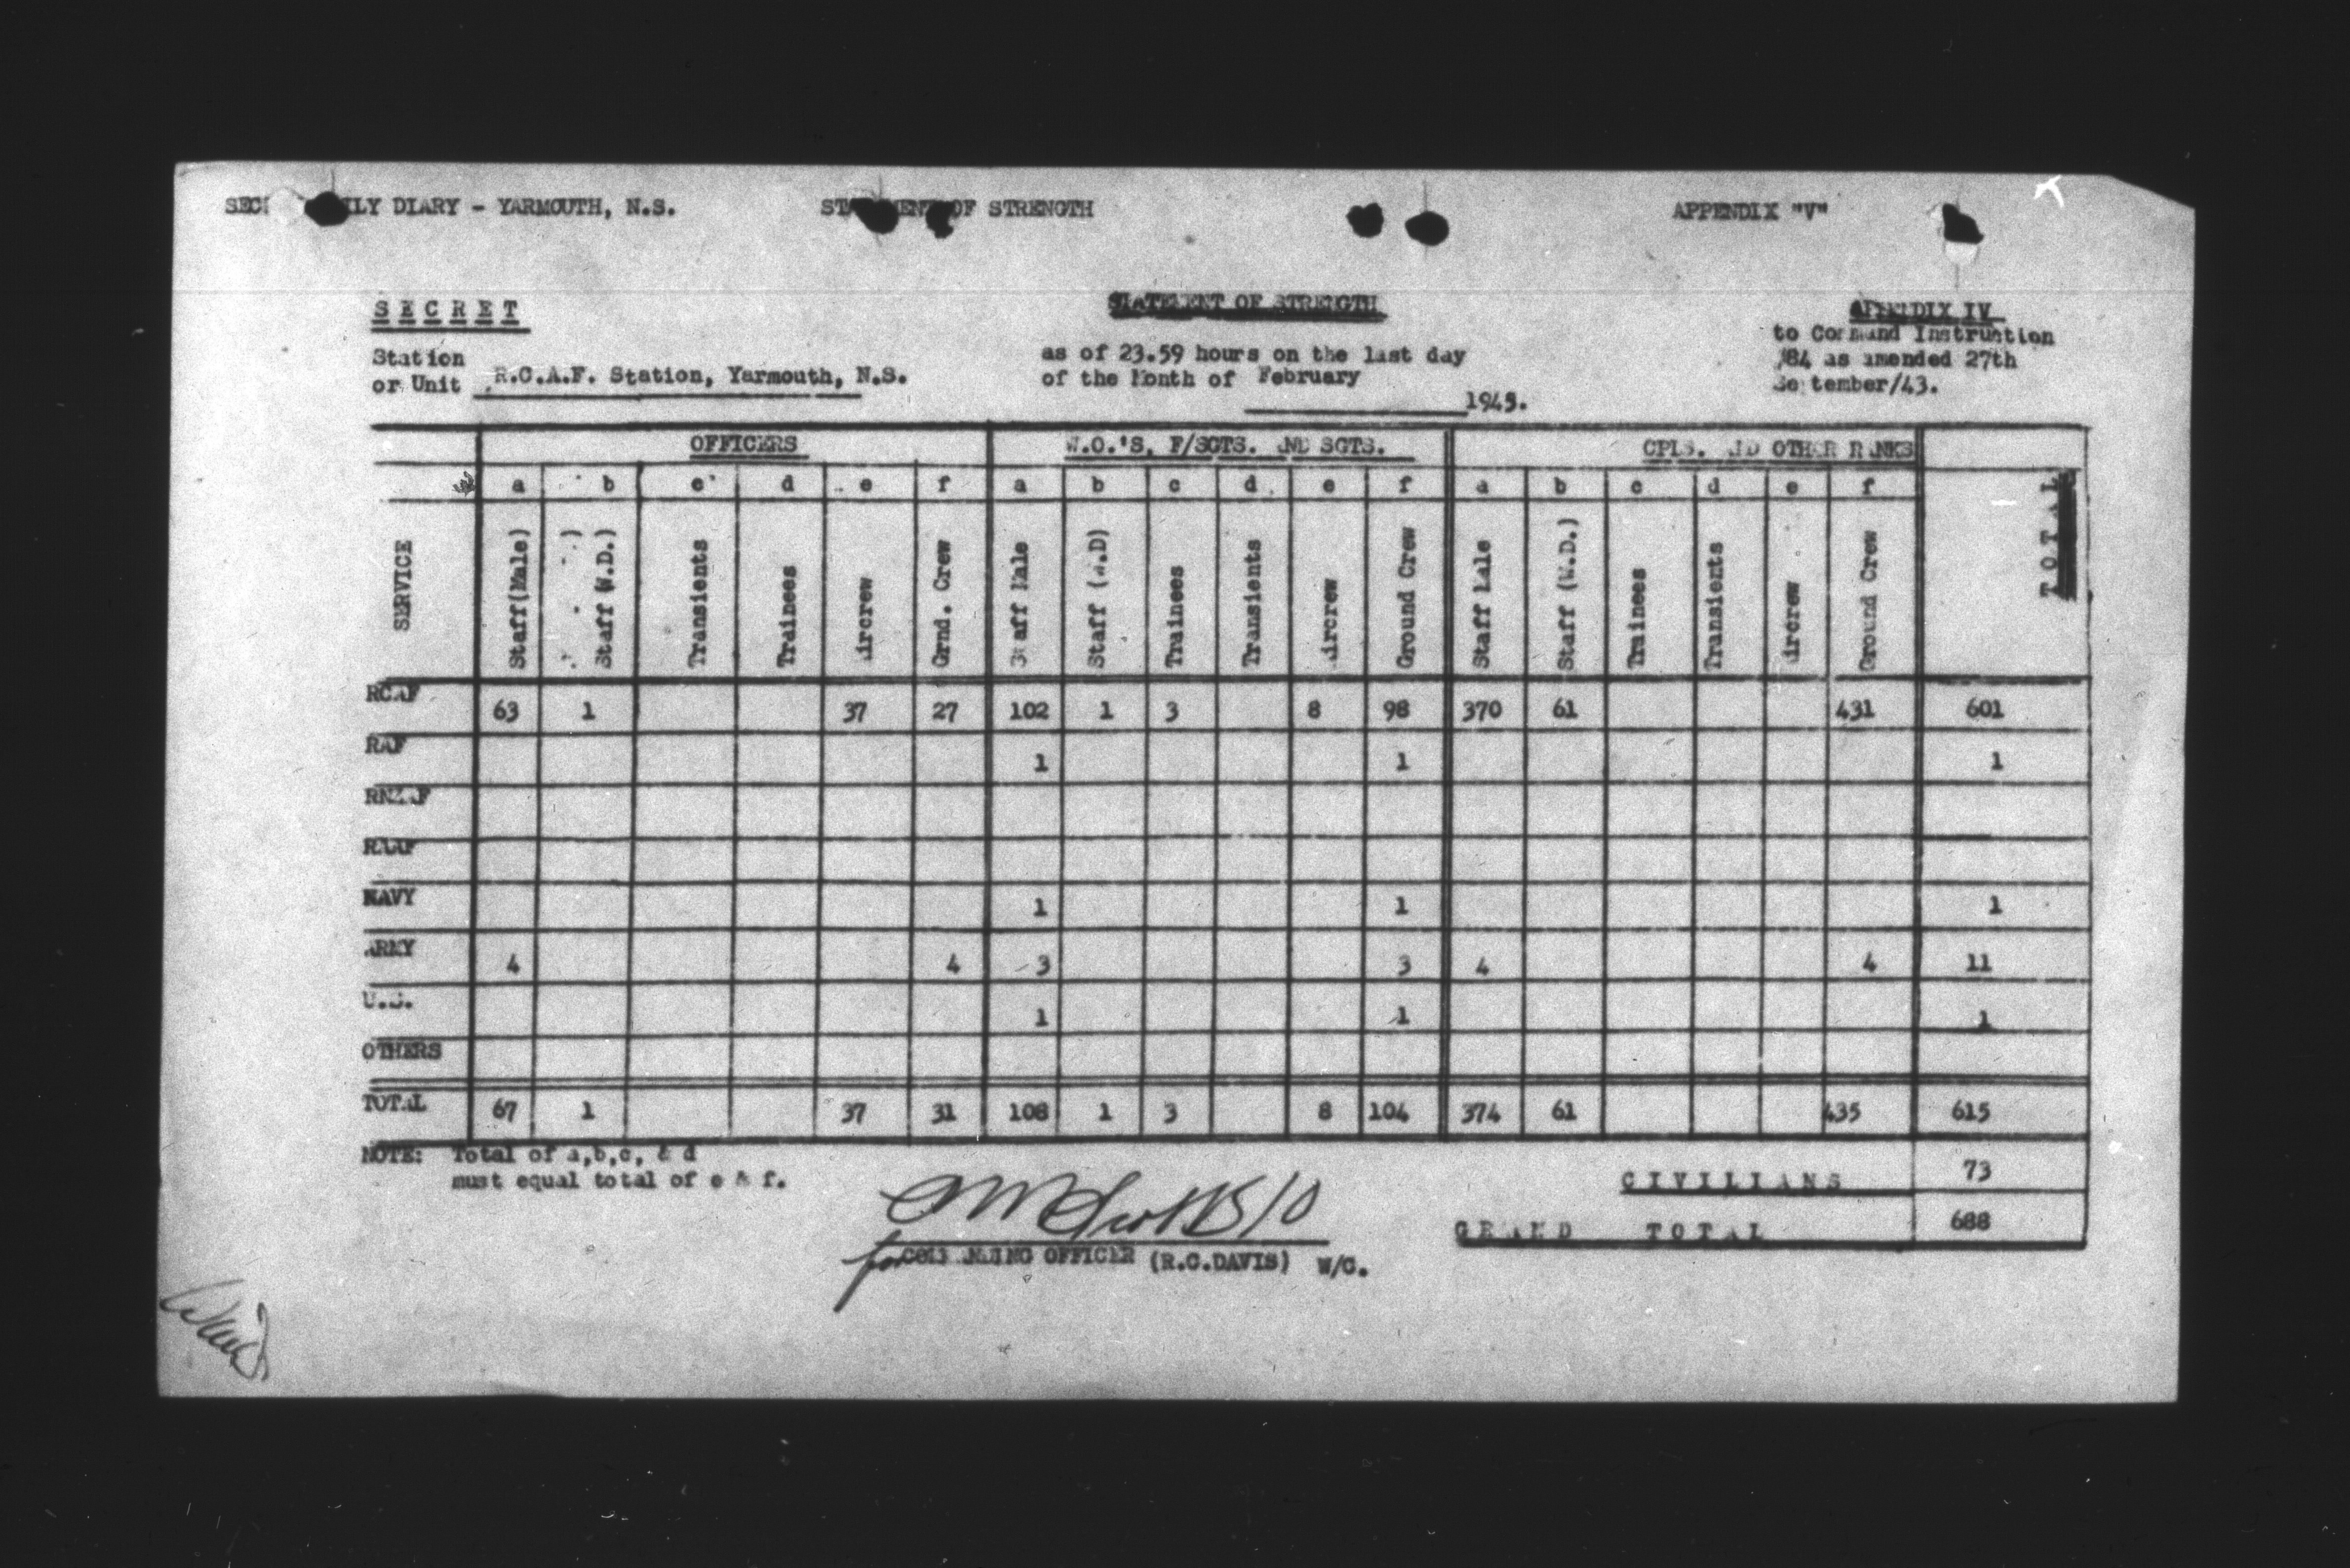 DIARY - YARMOUTH, N.S. OF STRENGTH APPENDIX "V"
SECRET
STATEMENT OF STRENGTH
APPENDIX IV
to Command Instruction
/84 as amended 27th
September/43.
Station
or Unit R.C.A.F. Station, Yarmouth, N.S.
as of 23.59 hours on the last day
of the Month of February
1945.
OFFICERS W.O.'S, F/SGTS. AND SGTS. CPLS. AND OTHER RANKS
a b c d e f a b c d e f a b c d e f
SERVICE Staff(Male) Staff (W.D.) Transients Trainees Aircrew Grnd. Crew Staff Male Staff (W.D) Trainees Transients Aircrew Ground Crew Staff Male Staff (W.D.) Trainees Transients Aircrew Ground Crew TOTAL
RCAF 63 1 37 27 102 1 3 8 98 370 61 431 601
RAF 1 1 1
RNZAF
RAAF
NAVY 1 1 1
ARMY 4 4 3 3 4 4 11
U.S. 1 1 1
OTHERS
TOTAL 67 1 37 31 108 1 3 8 104 374 61 435 615
NOTE: Total of a,b,c, & d
must equal total of e & f.
CIVILIANS 73
GRAND TOTAL 688
for COMMANDING OFFICER (R.C.DAVIS) W/C.